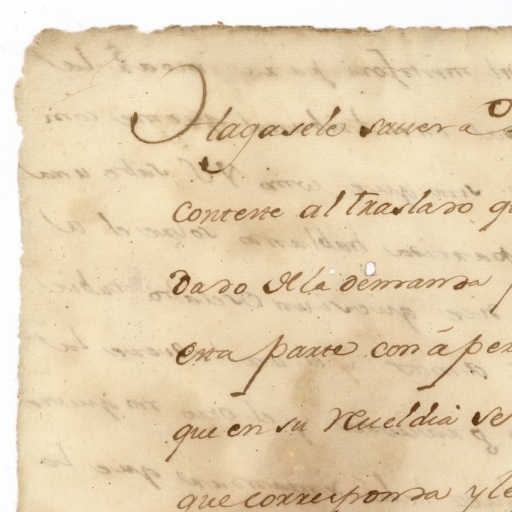 Hagasele saver a
conteste al traslado q
dado de la demanda p
esta parte con aper
que en su reveldia se
que corresponda y le